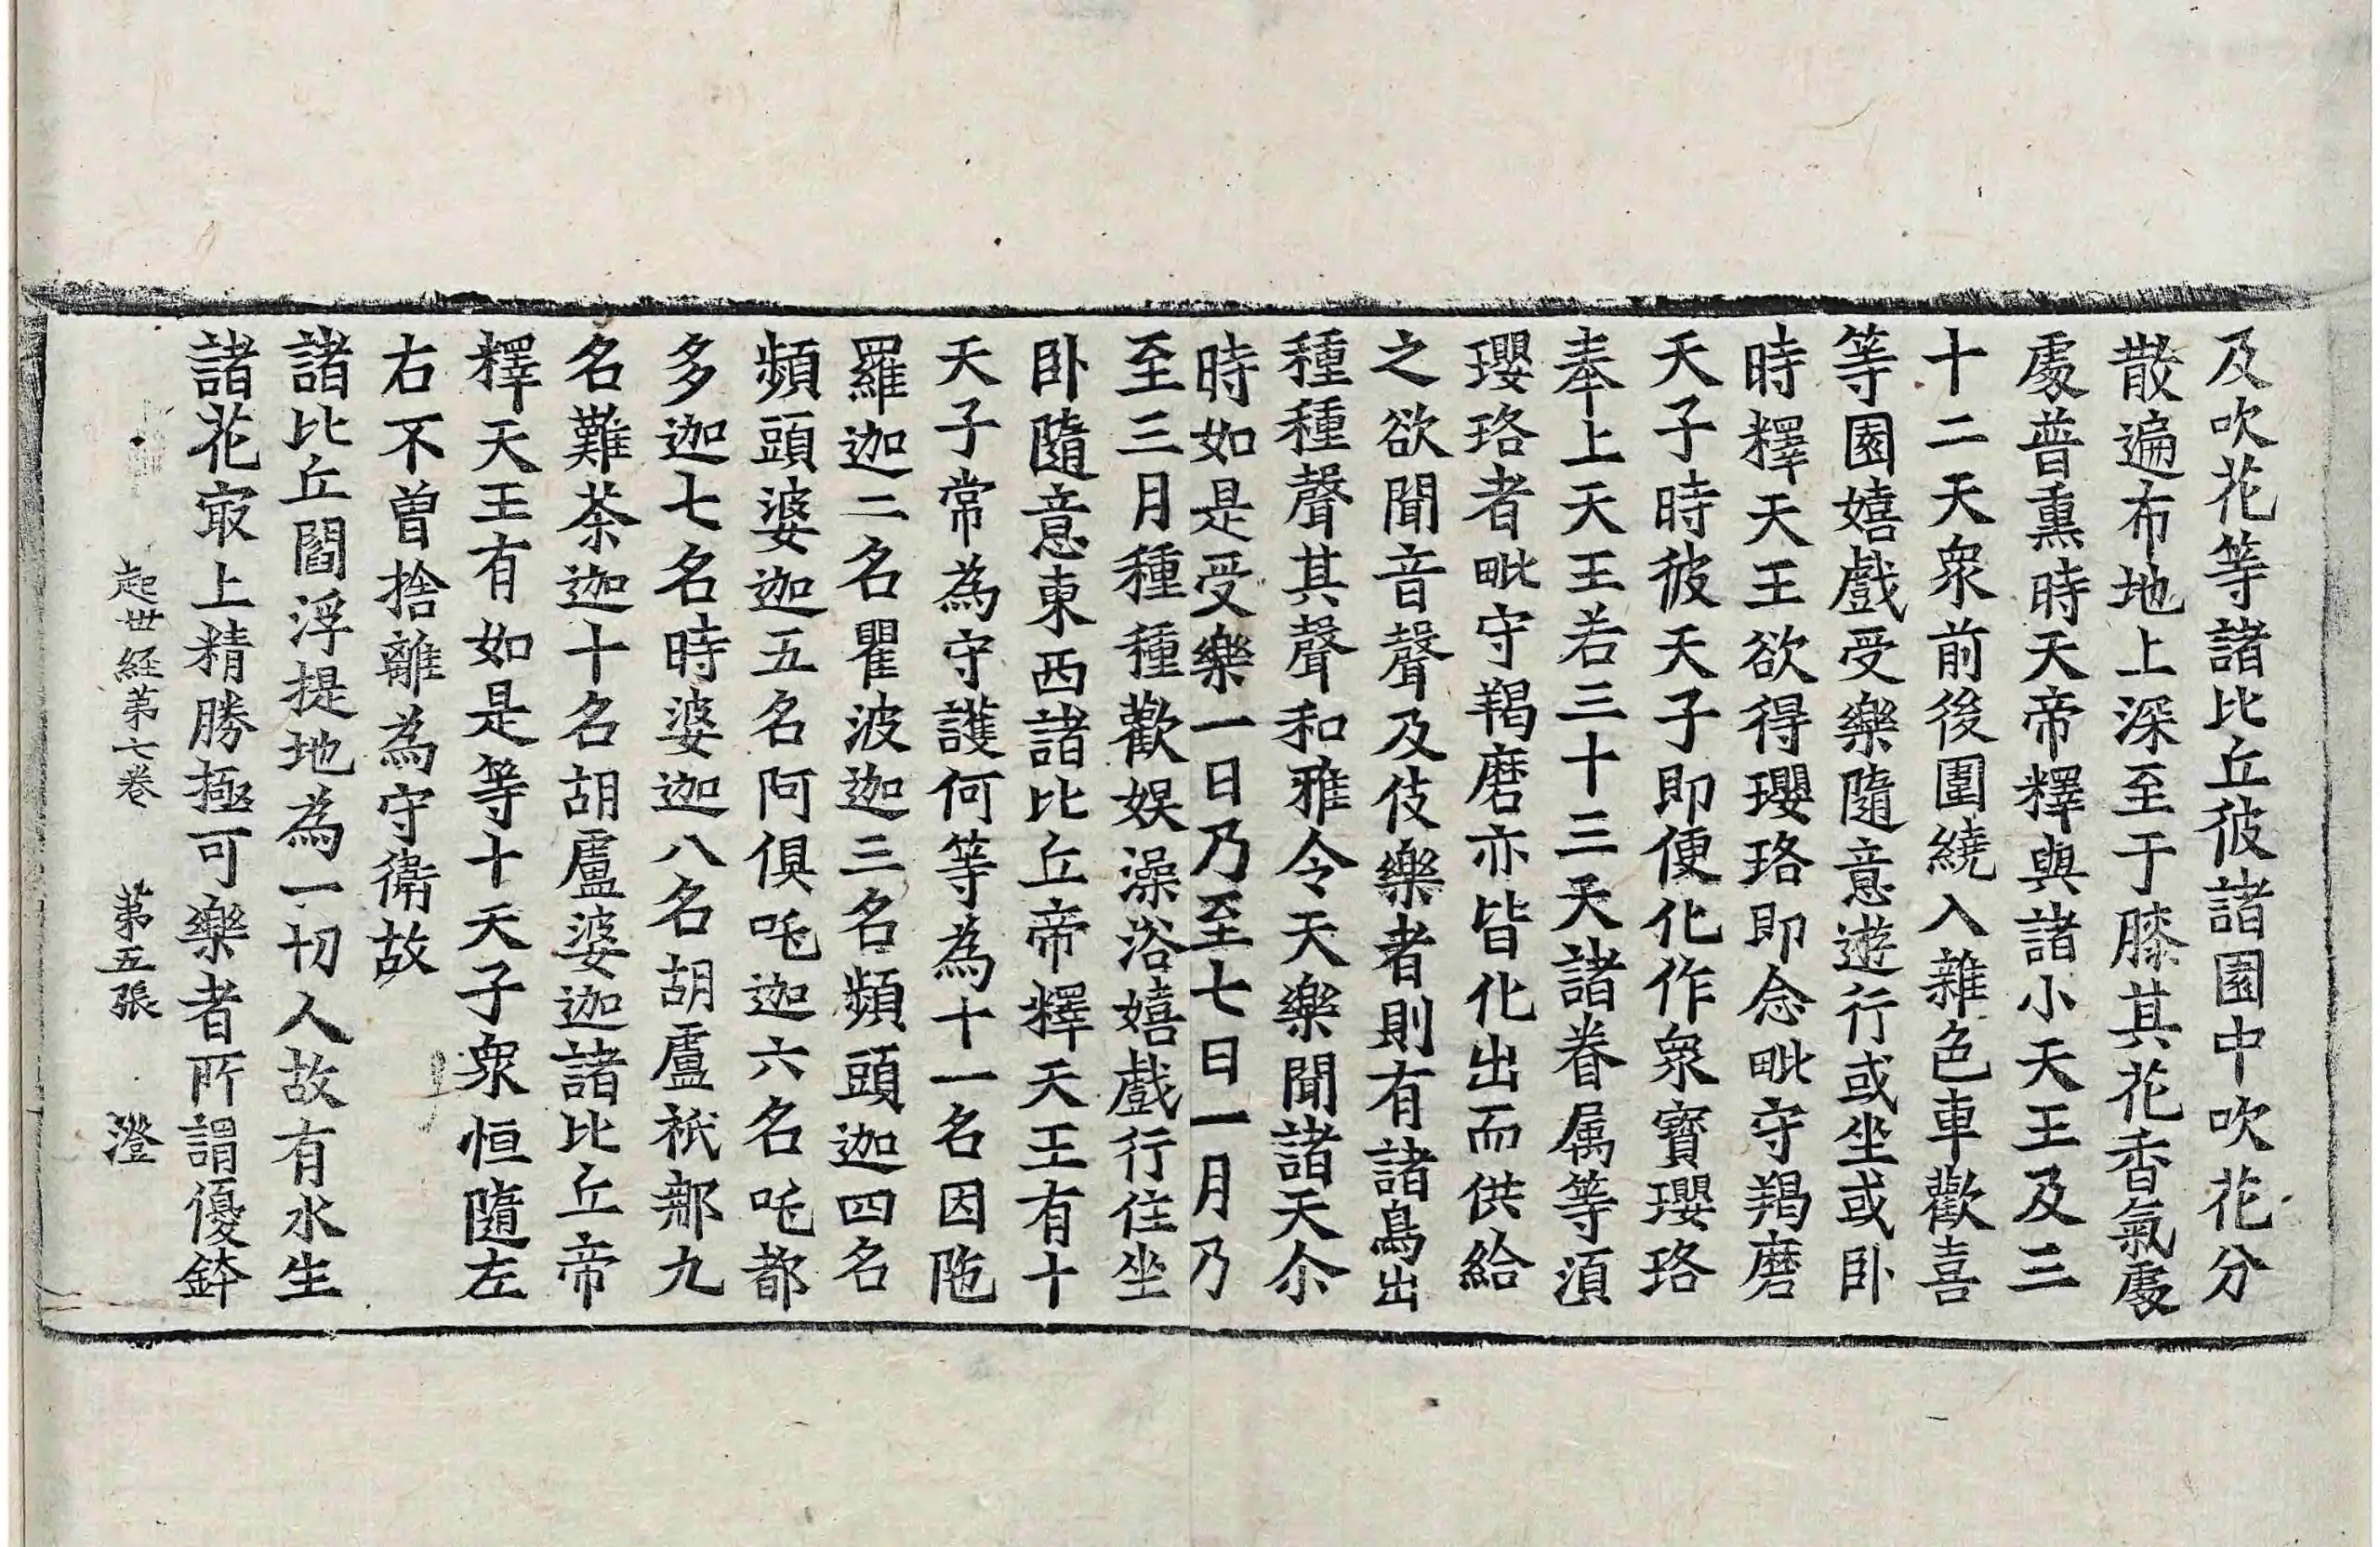 及吹花等諸比丘彼諸園中吹花分
散遍布地上深至于膝其花香氣處
處普熏時天帝釋與諸小天王及三
十二天衆前後圍繞入雜色車歡喜
等園嬉戲受樂隨意遊行或坐或卧
時釋天王欲得瓔珞即念毗守羯磨
天子時彼天子即便化作衆寶瓔珞
奉上天王若三十三天諸眷属等湏
瓔珞者毗守羯磨亦皆化出而供給
之欲聞音聲及伎樂者則有諸鳥出
種種聲其聲和雅令天樂聞諸天尒
時如是受樂一日乃至七日一月乃
至三月種種歡娛澡浴嬉戲行住坐
卧隨意東西諸比丘帝釋天王有十
天子常為守護何等為十一名因陁
羅迦二名瞿波迦三名頻頭迦四名
頻頭婆迦五名阿俱吒迦六名吒都
多迦七名時婆迦八名胡盧祇那九
名難荼迦十名胡盧婆迦諸比丘帝
釋天王有如是等十天子衆恒隨左
右不曽捨離為守衛故
諸比丘閻浮提地為一切人故有水生
諸花㝡上精勝極可樂者所謂優鉢
起世経苐七巻 苐五張 澄